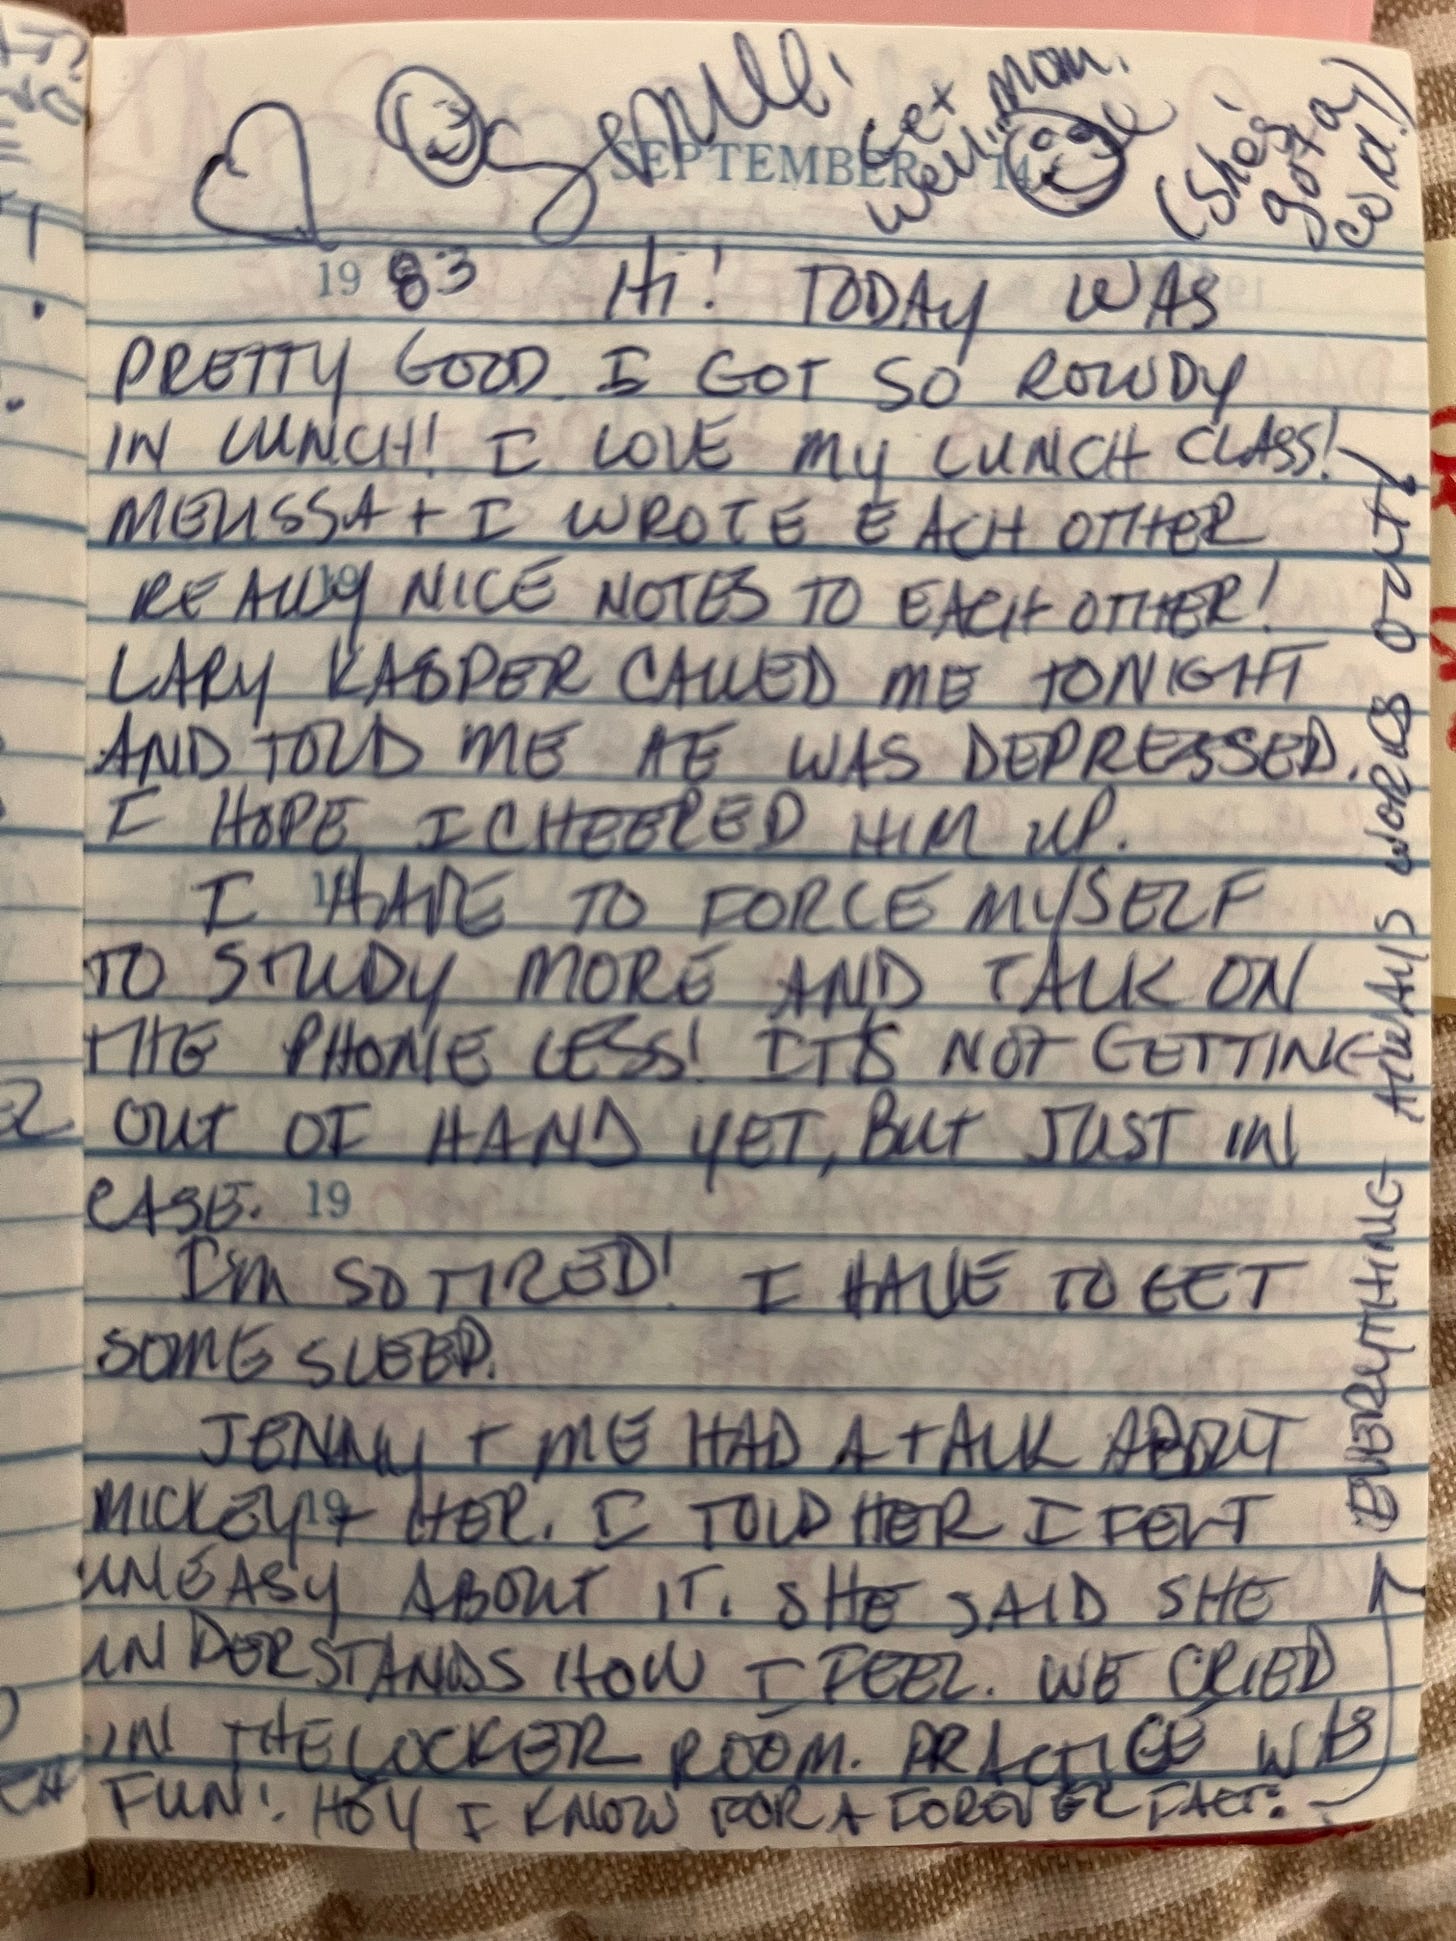 Smile!
Get
well, mom.
(She's
got a
cold!)
SEPTEMBER 14
19 83 Hi! TODAY WAS
PRETTY GOOD. I GOT SO ROWDY
IN LUNCH! I LOVE MY LUNCH CLASS!
MELISSA + I WROTE EACH OTHER
REALLY NICE NOTES TO EACH OTHER!
19
LARY KASPER CALLED ME TONIGHT
AND TOLD ME HE WAS DEPRESSED.
I HOPE I CHEERED HIM UP.
I HAVE TO FORCE MYSELF
TO STUDY MORE AND TALK ON
THE PHONE LESS! IT'S NOT GETTING
OUT OF HAND YET, BUT JUST IN
CASE. 19
I'm SO TIRED! I HAVE TO GET
SOME SLEEP.
JENNY + ME HAD A TALK ABOUT
MICKEY + HER. I TOLD HER I FELT
19
UNEASY ABOUT IT. SHE SAID SHE
UNDERSTANDS HOW I FEEL. WE CRIED
IN THE LOCKER ROOM. PRACTICE WAS
FUN! HEY I KNOW FOR A FOREVER FACT:
EVERYTHING ALWAYS WORKS OUT!